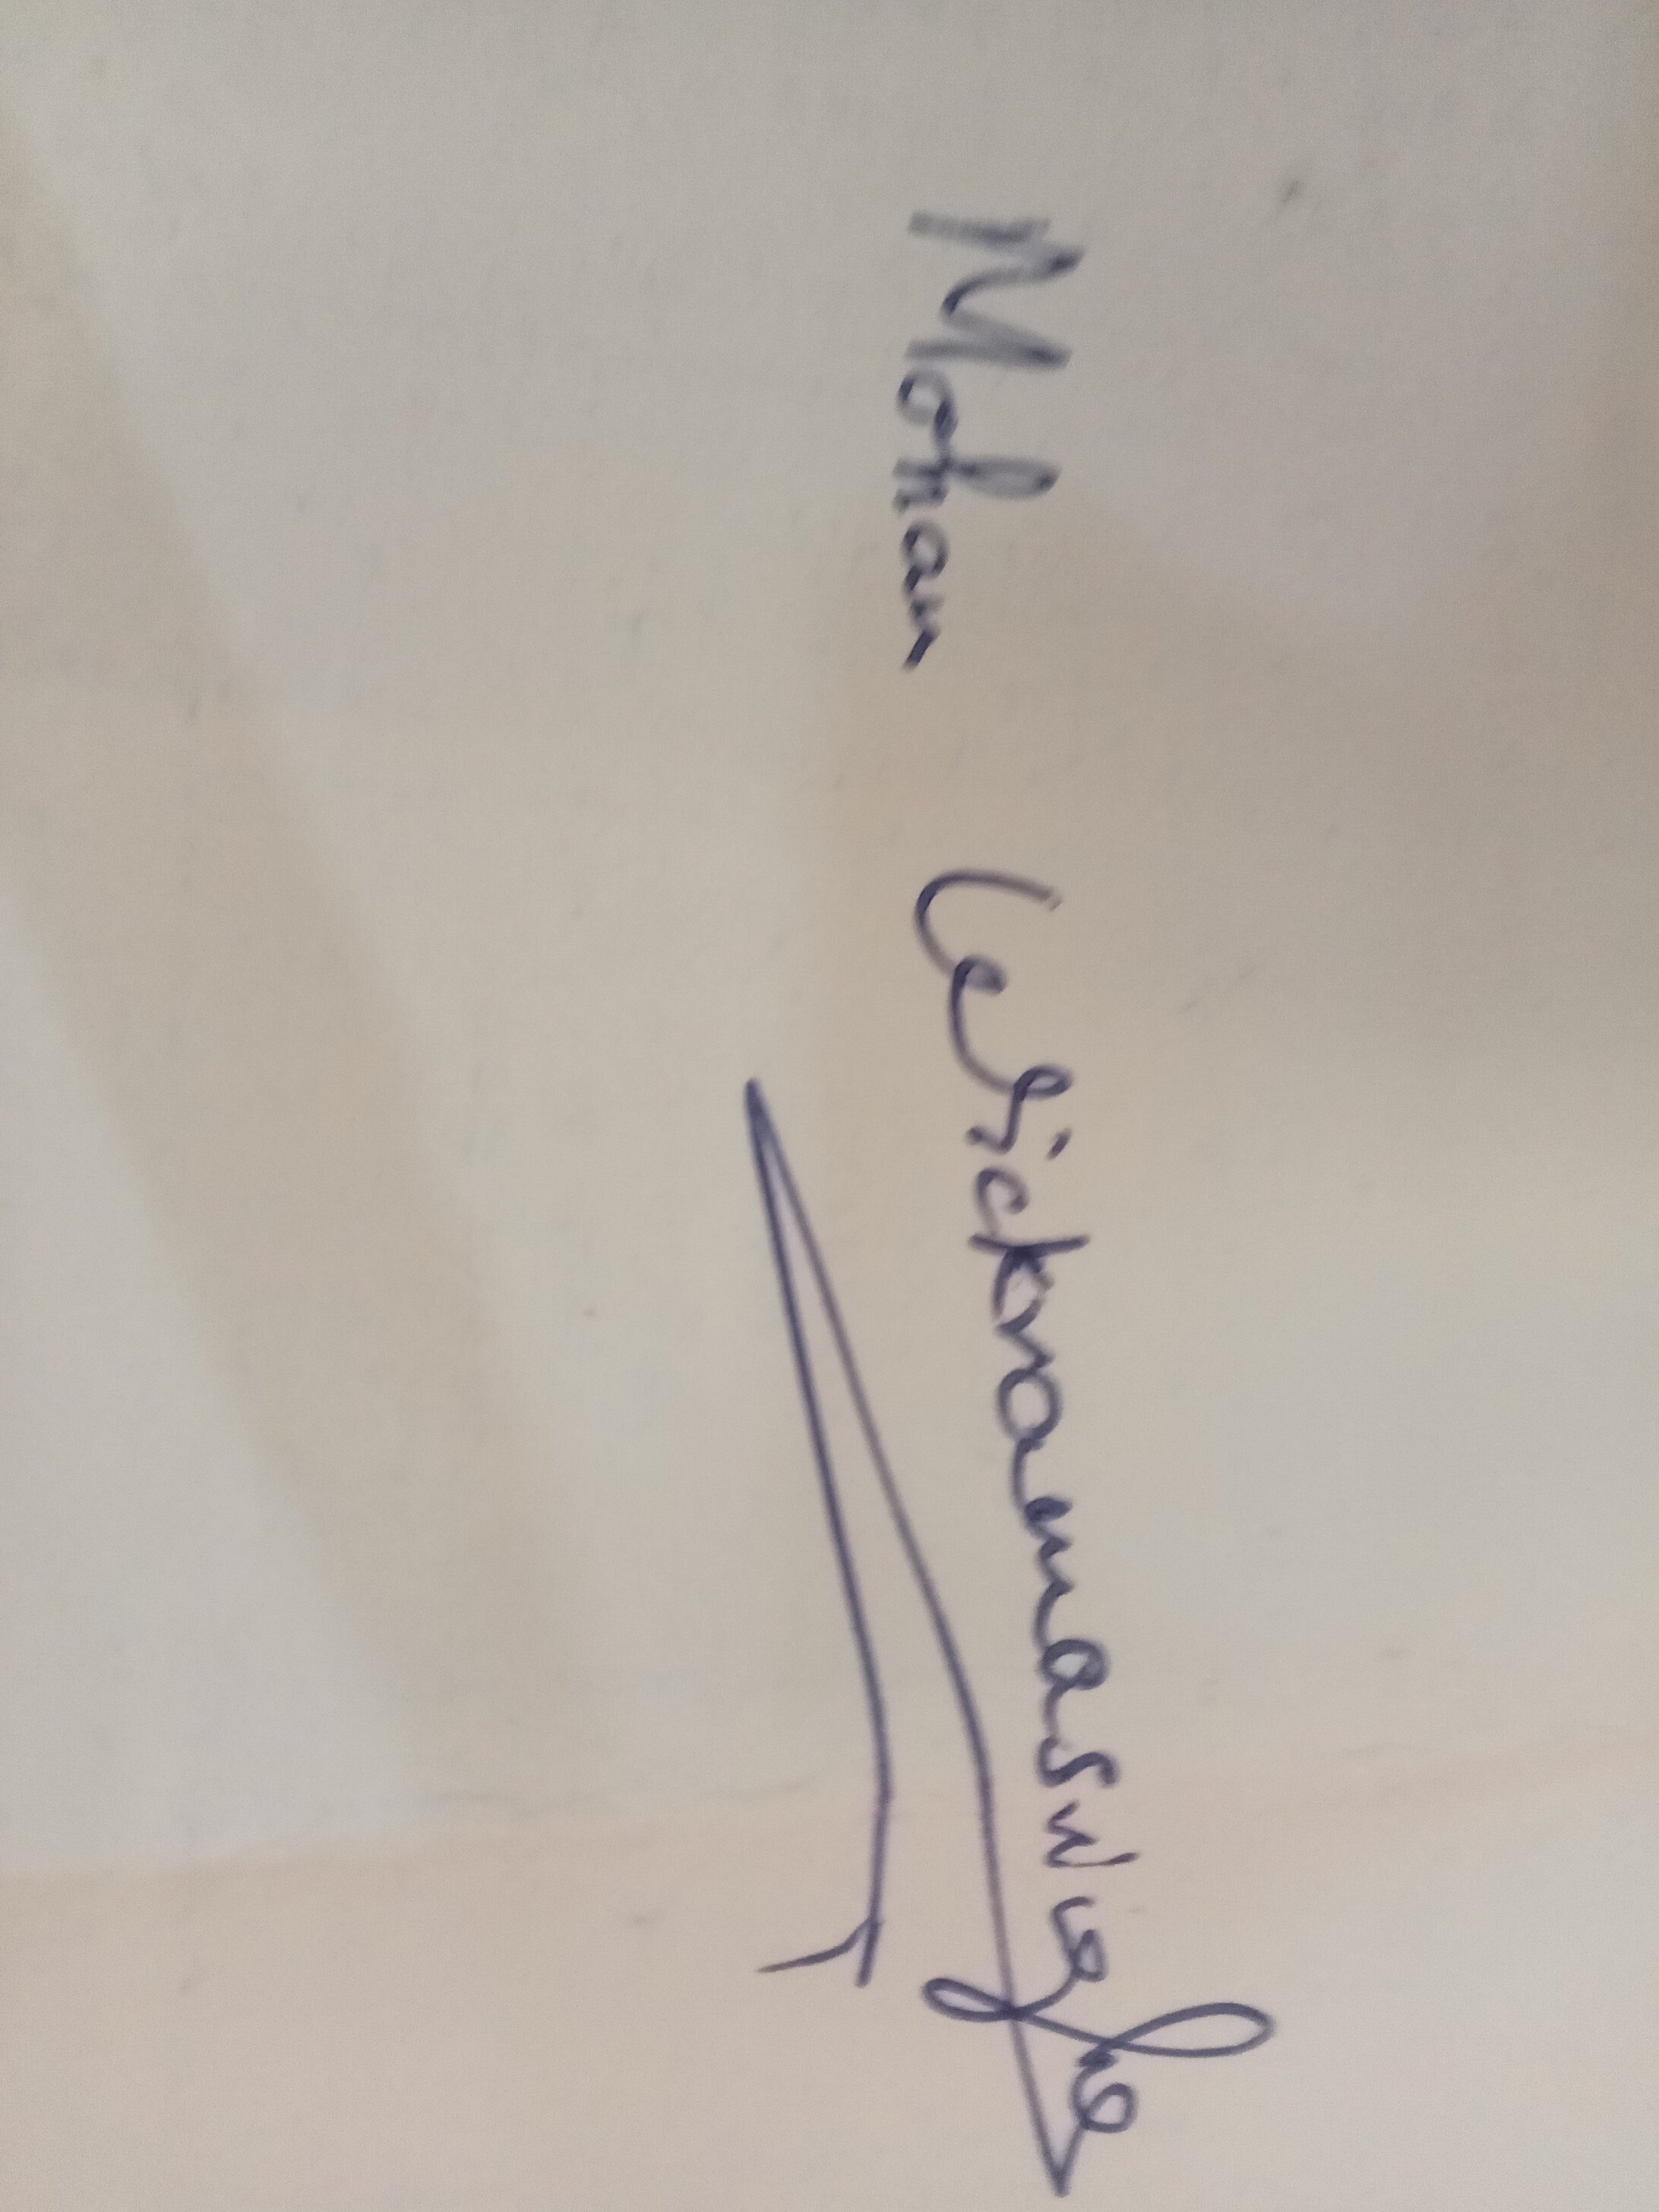 Mohan Wickramasingha